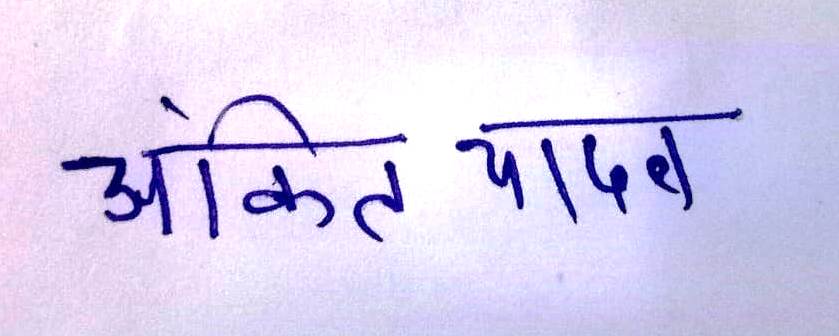 अंकित यादव